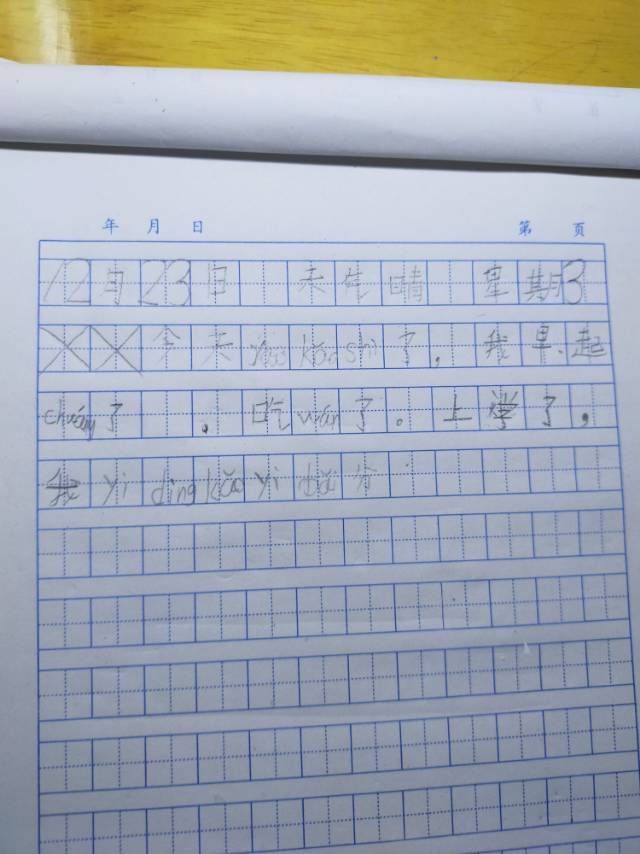 年 月 日 第 页
12月23日 天气晴 星期3
今天yào kǎo shì了,我早起
chuáng了,吃wán了。上学了,
我yì dìng kǎo yì bǎi分